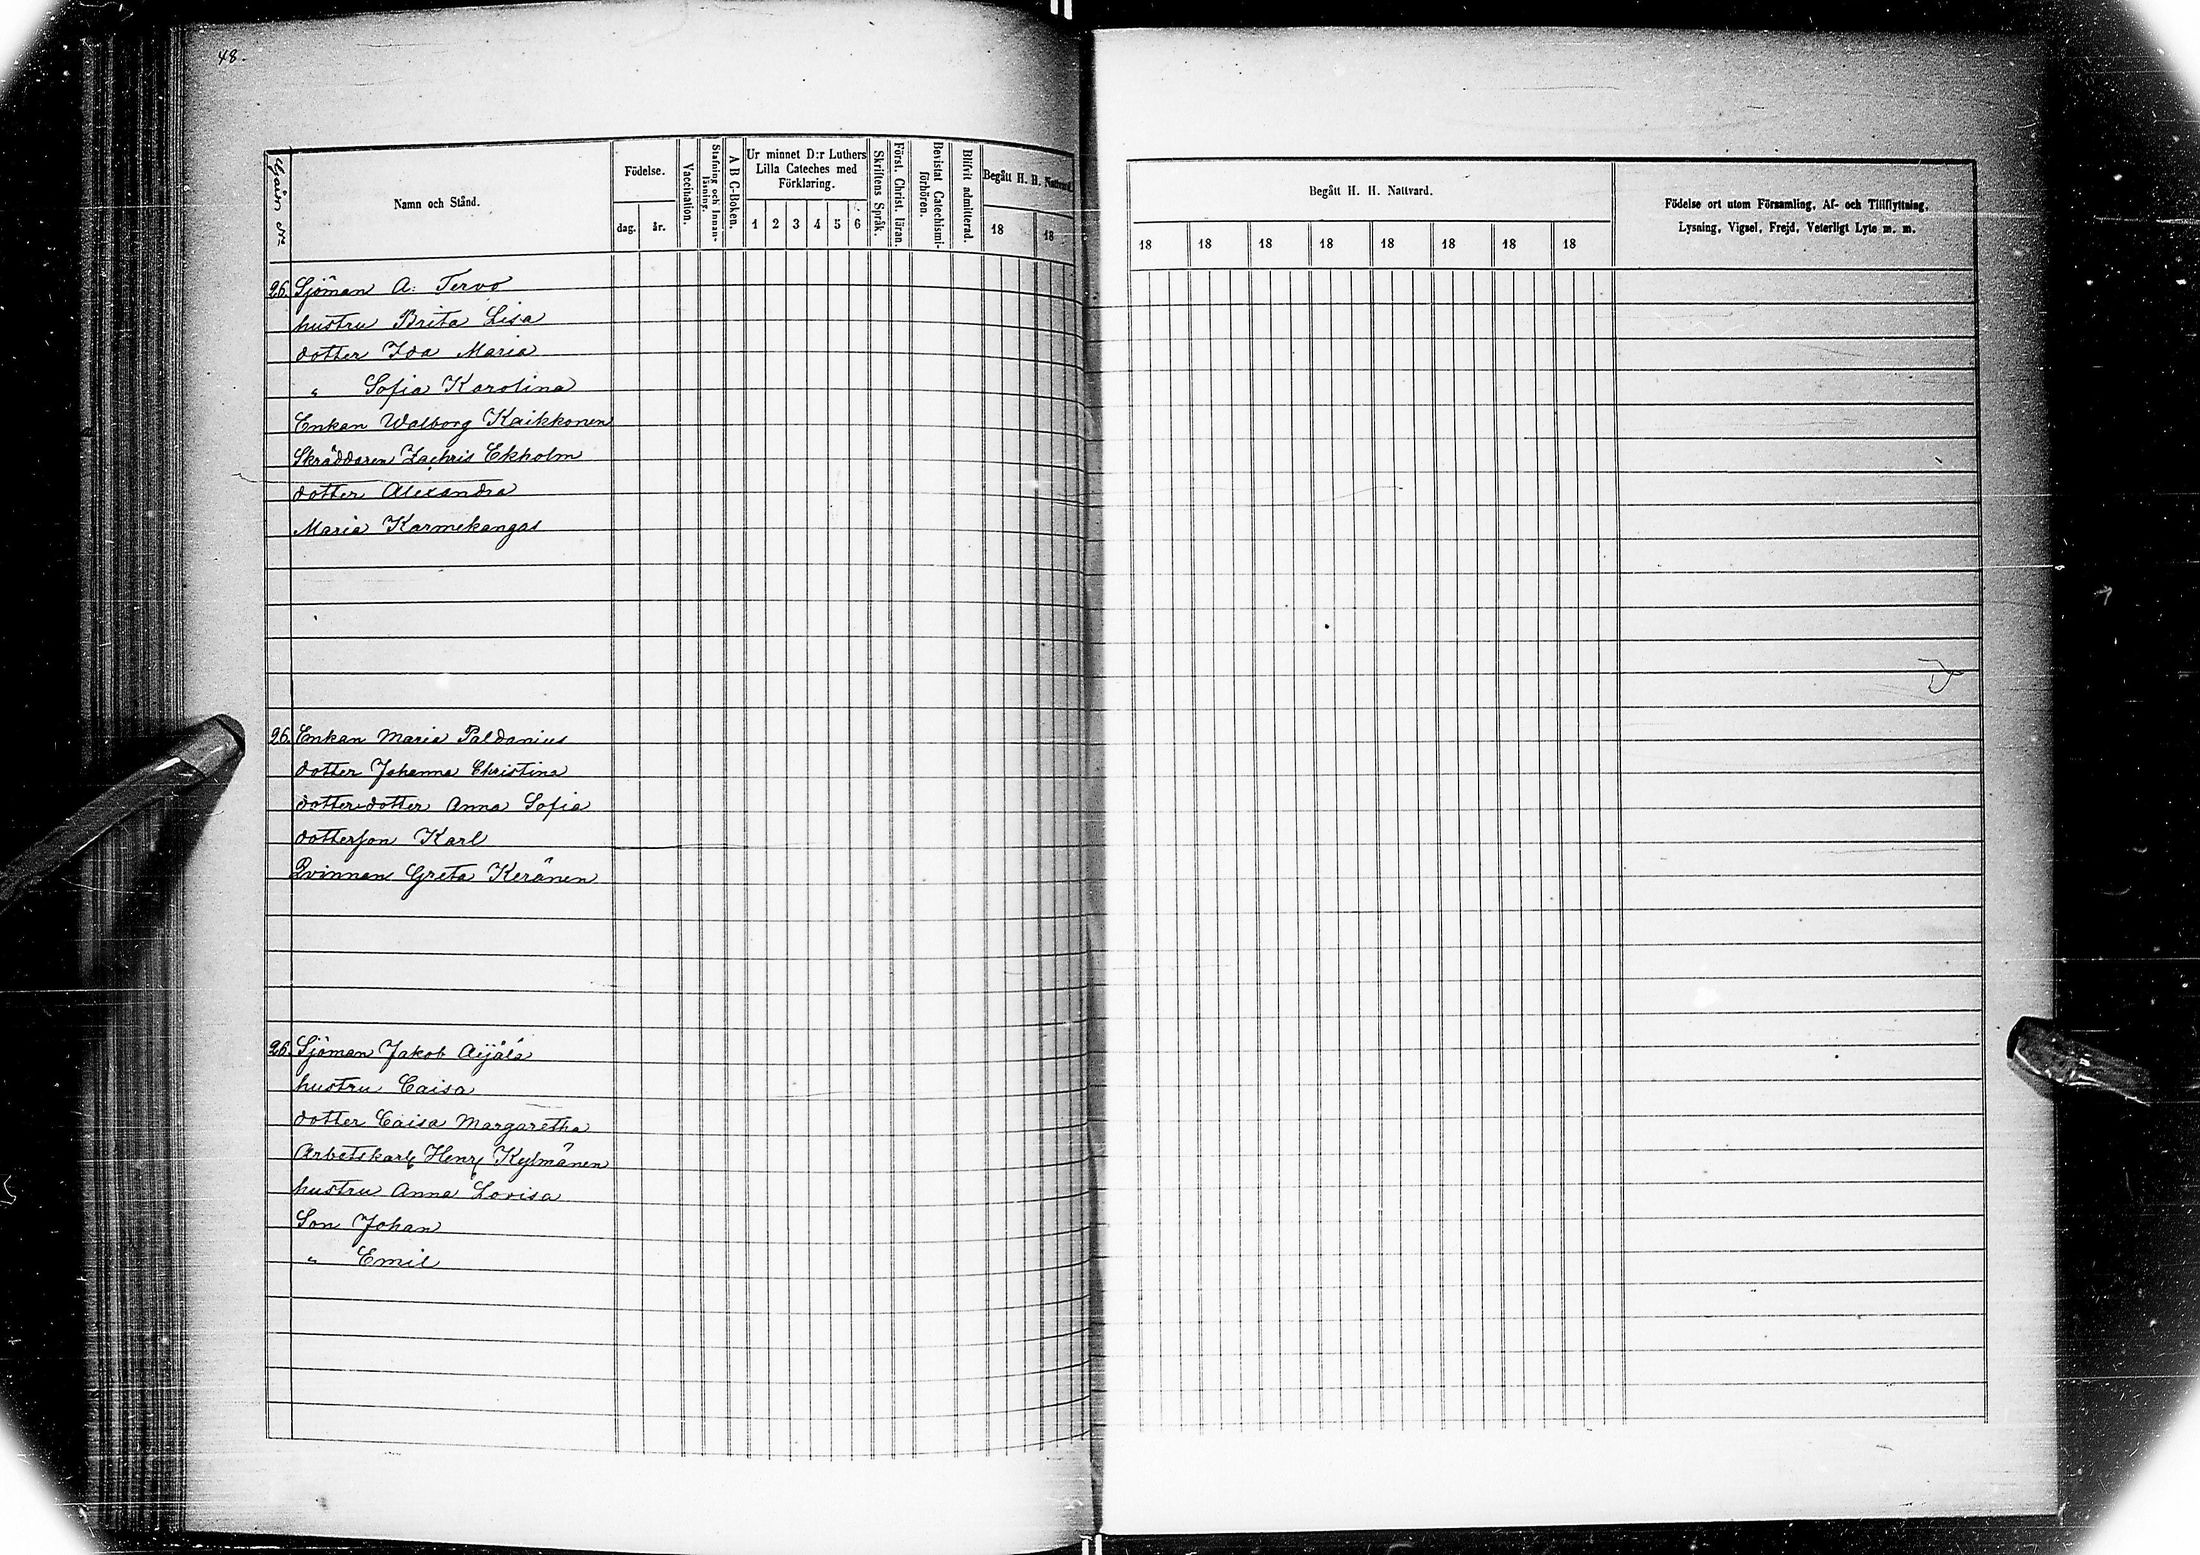 48.
Gårn No
Namn och Stånd.
Födelse.
dag. år.
Vaccination.
Stafning och Innanläsning.
A B C-Boken.
Ur minnet D:r Luthers
Lilla Cateches med
Förklaring.
1 2 3 4 5 6
Skriftens Språk.
Först. Christ. läran.
Bevistat Catechismi-
förhören.
Blifvit admitterad.
Begått H. H. Nattvard.
18 18
Begått H. H. Nattvard.
18 18 18 18 18 18 18 18
Födelse ort utom Församling, Af- och Tillflyttning,
Lysning, Vigsel, Frejd, Veterligt Lyte m. m.
26. Sjöman A: Tervo
hustru Brita Lisa
dotter Ida Maria
" Sofia Karolina
Enkan Walborg Kaikkonen
Skräddaren Zachris Ekholm
dotter Alexandra
Maria Karmekangas
26. Enkan Maria Paldanius
dotter Johanna Christina
dotterdotter Anna Sofia
dotterson Karl
Qvinnan Greta Keränen
26. Sjöman Jakob Aijälä
hustru Caisa
dotter Caisa Margaretha
Arbetskarl Henr Kylmänen
hustru Anna Lovisa
Son Johan
" Emil